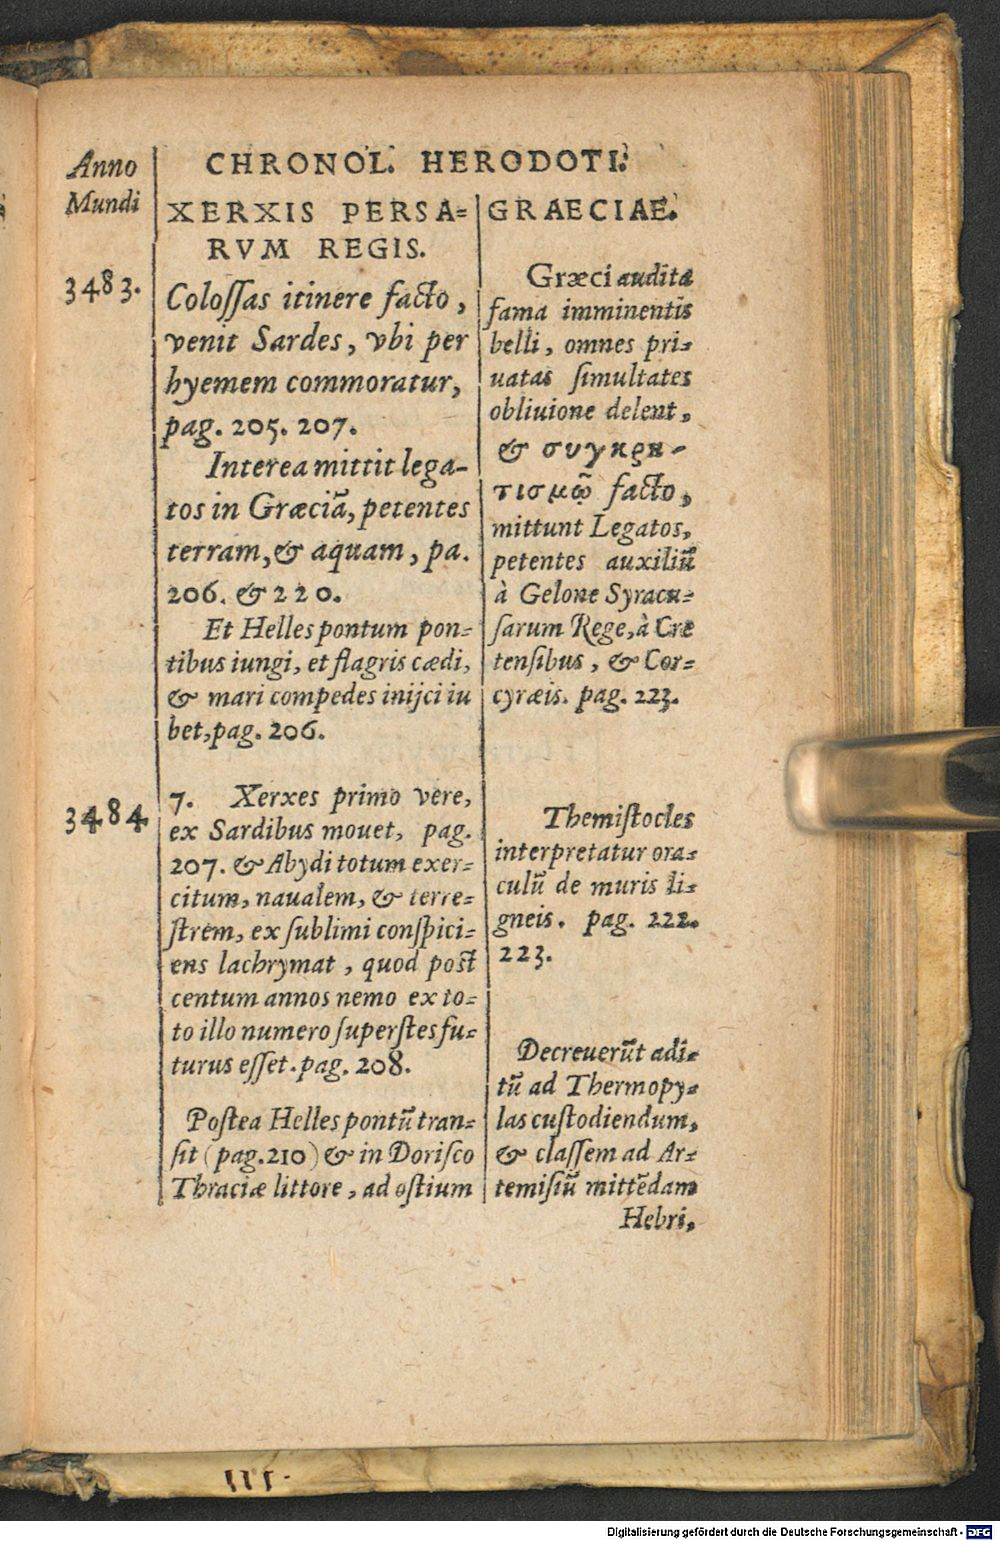 CHRONOL. HERODOTI.
Anno
Mundi
XERXIS PERSA=
RVM REGIS.
3483.
Coloſſas itinere facto,
venit Sardes, vbi per
hyemem commoratur,
pag. 205. 207.
Interea mittit lega-
tos in Græciã, petentes
terram, & aquam, pa.
206. & 220.
Et Hellespontum pon=
tibus iungi, et flagris cædi,
& mari compedes inijci iu
bet, pag. 206.
3484
7. Xerxes primo vere,
ex Sardibus mouet, pag.
207. & Abydi totum exer=
citum, naualem, & terre=
ſtrem, ex ſublimi conſpici=
ens lachrymat, quod poſt
centum annos nemo ex to=
to illo numero ſuperſtes fu=
turus eſſet. pag. 208.
Poſtea Hellespontũ tran=
ſit (pag. 210) & in Doriſco
Thraciæ littore, ad oſtium
GRAECIAE.
Græci audita
fama imminentis
belli, omnes pri=
uatas ſimultates
obliuione delent,
& συγκρη-
τισμῷ facto,
mittunt Legatos,
petentes auxiliũ
à Gelone Syracu=
ſarum Rege, à Cre
tenſibus, & Cor=
cyræis. pag. 223.
Themiſtocles
interpretatur ora=
culũ de muris li=
gneis. pag. 222.
223.
Decreuerũt adi=
tũ ad Thermopy=
las cuſtodiendum,
& claſſem ad Ar=
temiſiũ mittẽdam
Hebri,
III.
Digitalisierung gefördert durch die Deutsche Forschungsgemeinschaft - DFG